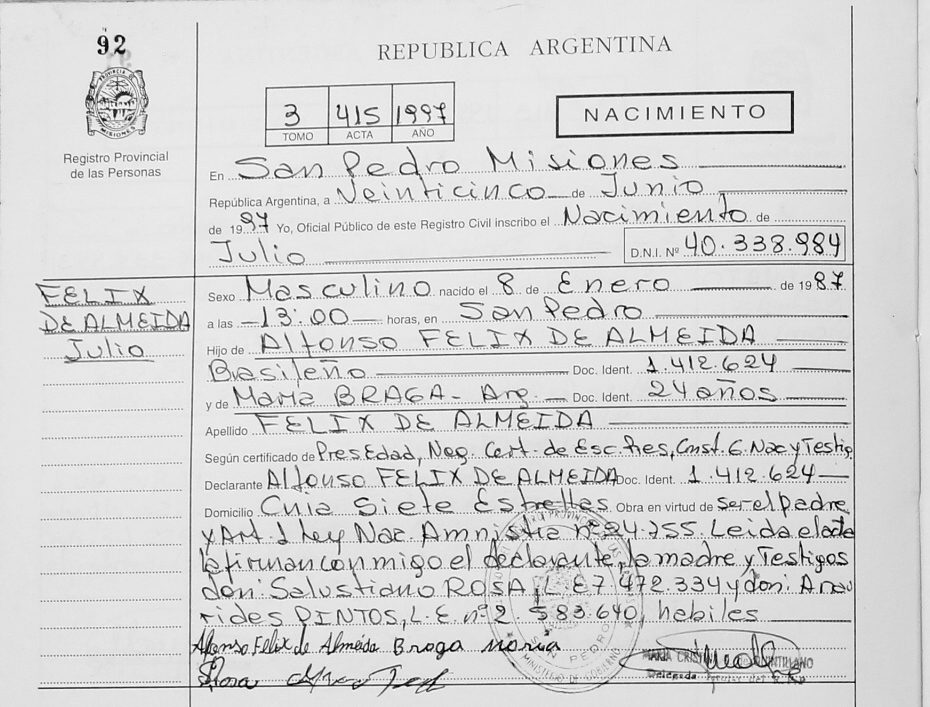 92
REPUBLICA ARGENTINA
PROVINCIA DE MISIONES
3 415 1997
TOMO ACTA AÑO
NACIMIENTO
Registro Provincial
de las Personas
En San Pedro Misiones
República Argentina, a Veinticinco de Junio
de 1997 Yo, Oficial Público de este Registro Civil inscribo el Nacimiento de
Julio D.N.I. Nº 40.338.984
FELIX
DE ALMEIDA
Julio
Sexo Masculino nacido el 8 de Enero de 1987
a las 13:00 horas, en San Pedro
Hijo de Alfonso FELIX DE ALMEIDA
Brasileño Doc. Ident. 1.412.624
y de Maria BRAGA - Arg. Doc. Ident. 24 años
Apellido FELIX DE ALMEIDA
Según certificado de Pres Edad, Neg. Cert. de Esc. fres, Const. C. Nac y Testig
Declarante Alfonso FELIX DE ALMEIDA Doc. Ident. 1.412.624
Domicilio Cnia Siete Estrellas Obra en virtud de ser el Padre
y Art. 1 Ley Nac. Amnistia nº 24.755. Leida el acta
la firman conmigo el declarante, la madre y Testigos
don: Salustiano ROSA, L.E 7.472.334 y don: Arau
rides PINTOS, L.E. nº 2.583.640, habiles
Afonso Felix de Almeida Braga Maria
Rosa
MARIA CRISTI QUINTILIANO
SAN PEDRO
MINISTERIO DE GOBIERNO